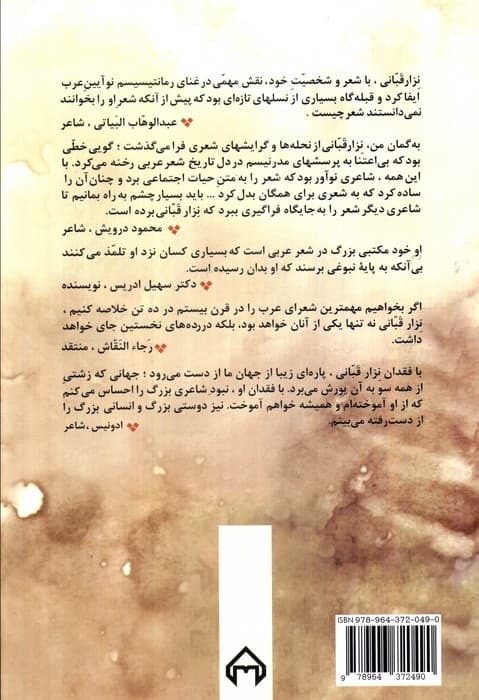 نِزار قَبّانی ، با شعر و شخصیّتِ خود، نقش مهمّی در غنای رمانتیسیسم نو آیین عرب
ایفا کرد و قبله‌گاه بسیاری از نسلهای تازه‌ای بود که پیش از آنکه شعر او را بخوانند
نمی‌دانستند شعر چیست .
عبدالوهاب البَیاتی ، شاعر
به گمان من، نِزار قَبّانی از نحله‌ها و گرایشهای شعری فرا می‌گذشت ؛ گویی خطّی
بود که بی‌اعتنا به پرسشهای مدرنیسم در دل تاریخ شعر عربی رخنه می‌کرد. با
این همه ، شاعری نوآور بود که شعر را به متنِ حیات اجتماعی برد و چنان آن را
ساده کرد که به شعری برای همگان بدل کرد ... باید بسیار چشم به راه بمانیم تا
شاعری دیگر شعر را به جایگاه فراگیری ببرد که نِزار قَبّانی برده است.
محمود درویش ، شاعر
او خود مکتبی بزرگ در شعر عربی است که بسیاری کسان نزد او تلمّذ می‌کنند
بی‌آنکه به پایهٔ نبوغی برسند که او بدان رسیده است.
دکتر سهیل ادریس ، نویسنده
اگر بخواهیم مهمترین شعرای عرب را در قرن بیستم در ده تن خلاصه کنیم ،
نِزار قَبّانی نه تنها یکی از آنان خواهد بود، بلکه در رده‌های نخستین جای خواهد
داشت.
رَجاء النَقّاش ، منتقد
با فقدان نِزار قَبّانی ، پاره‌ای زیبا از جهان ما از دست می‌رود ؛ جهانی که زشتی
از همه سو به آن یورش می‌برد. با فقدان او ، نبود شاعری بزرگ را احساس می‌کنم
که از او آموخته‌ام و همیشه خواهم آموخت. نیز دوستی بزرگ و انسانی بزرگ را
از دست‌رفته می‌بینم.
ادونیس ، شاعر
ISBN 978-964-372-049-0
9 789643 72490